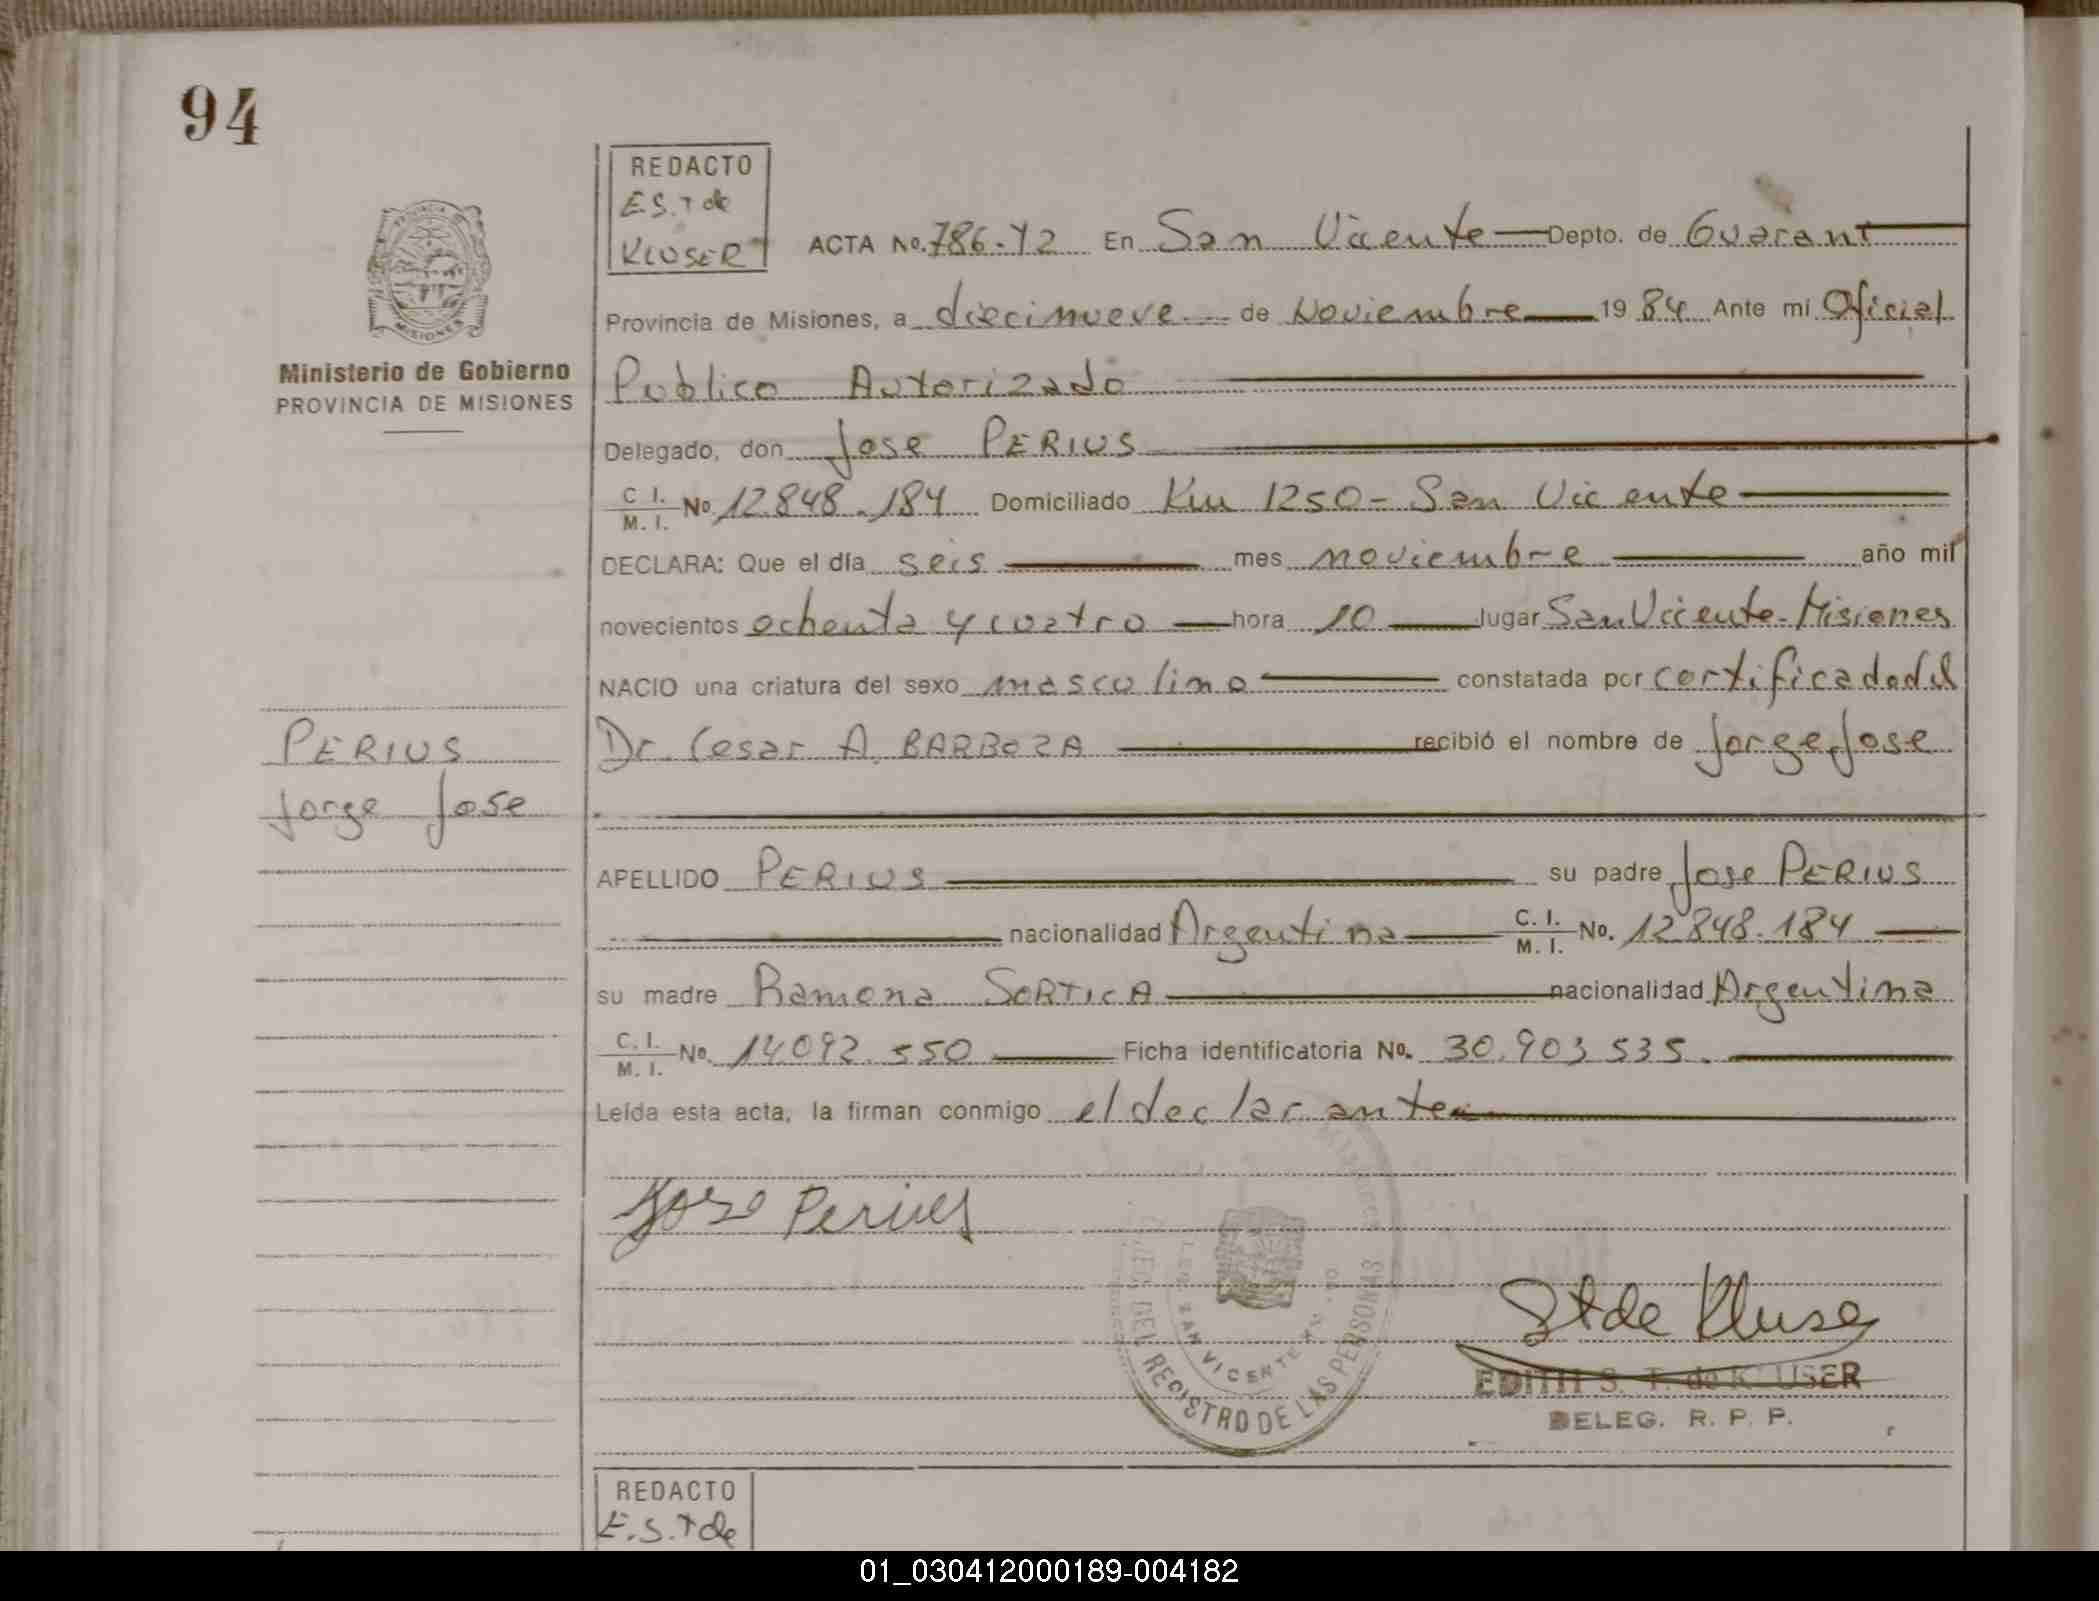 94
REDACTO
E.S.T de
KLUSER
ACTA No. 786-Y2 En San Vicente Depto. de Guarani
Provincia de Misiones, a diecinueve de Noviembre 19 84 Ante mi Oficial
Publico Autorizado
Ministerio de Gobierno
PROVINCIA DE MISIONES
Delegado, don Jose PERIUS
C. I. / M. I. No. 12.848.184 Domiciliado Km 1250 - San Vicente
DECLARA: Que el día seis mes noviembre año mil
novecientos ochenta y cuatro hora 10 lugar San Vicente - Misiones
NACIO una criatura del sexo masculino constatada por certificado del
Dr. Cesar A. BARBOZA recibió el nombre de Jorge Jose
PERIUS
Jorge Jose
APELLIDO PERIUS su padre Jose PERIUS
nacionalidad Argentina C. I. / M. I. No. 12.848.184
su madre Ramona SORTICA nacionalidad Argentina
C. I. / M. I. No. 14092.550 Ficha identificatoria No. 30.903.535.
Leída esta acta, la firman conmigo el declarante
Jose Perius
St de Kluser
EDITH S. T. de KLUSER
DELEG. R. P. P.
DEL REGISTRO DE LAS PERSONAS
SAN VICENTE
MISIONES
REDACTO
E.S.T de
01_030412000189-004182